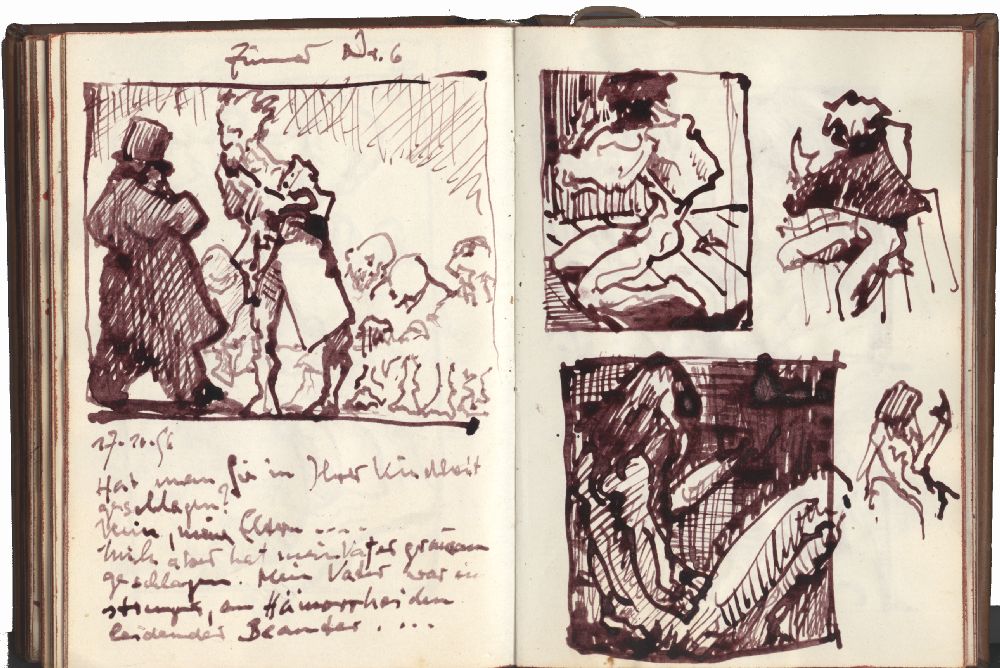 Zimmer Nr. 6
17.10.56
Hat man Sie in Ihrer Kindheit
geschlagen?
Nein, meine Eltern ....
Mich aber hat mein Vater grausam
geschlagen. Mein Vater war ein
strenger, an Hämorrhoiden
leidender Beamter. ...